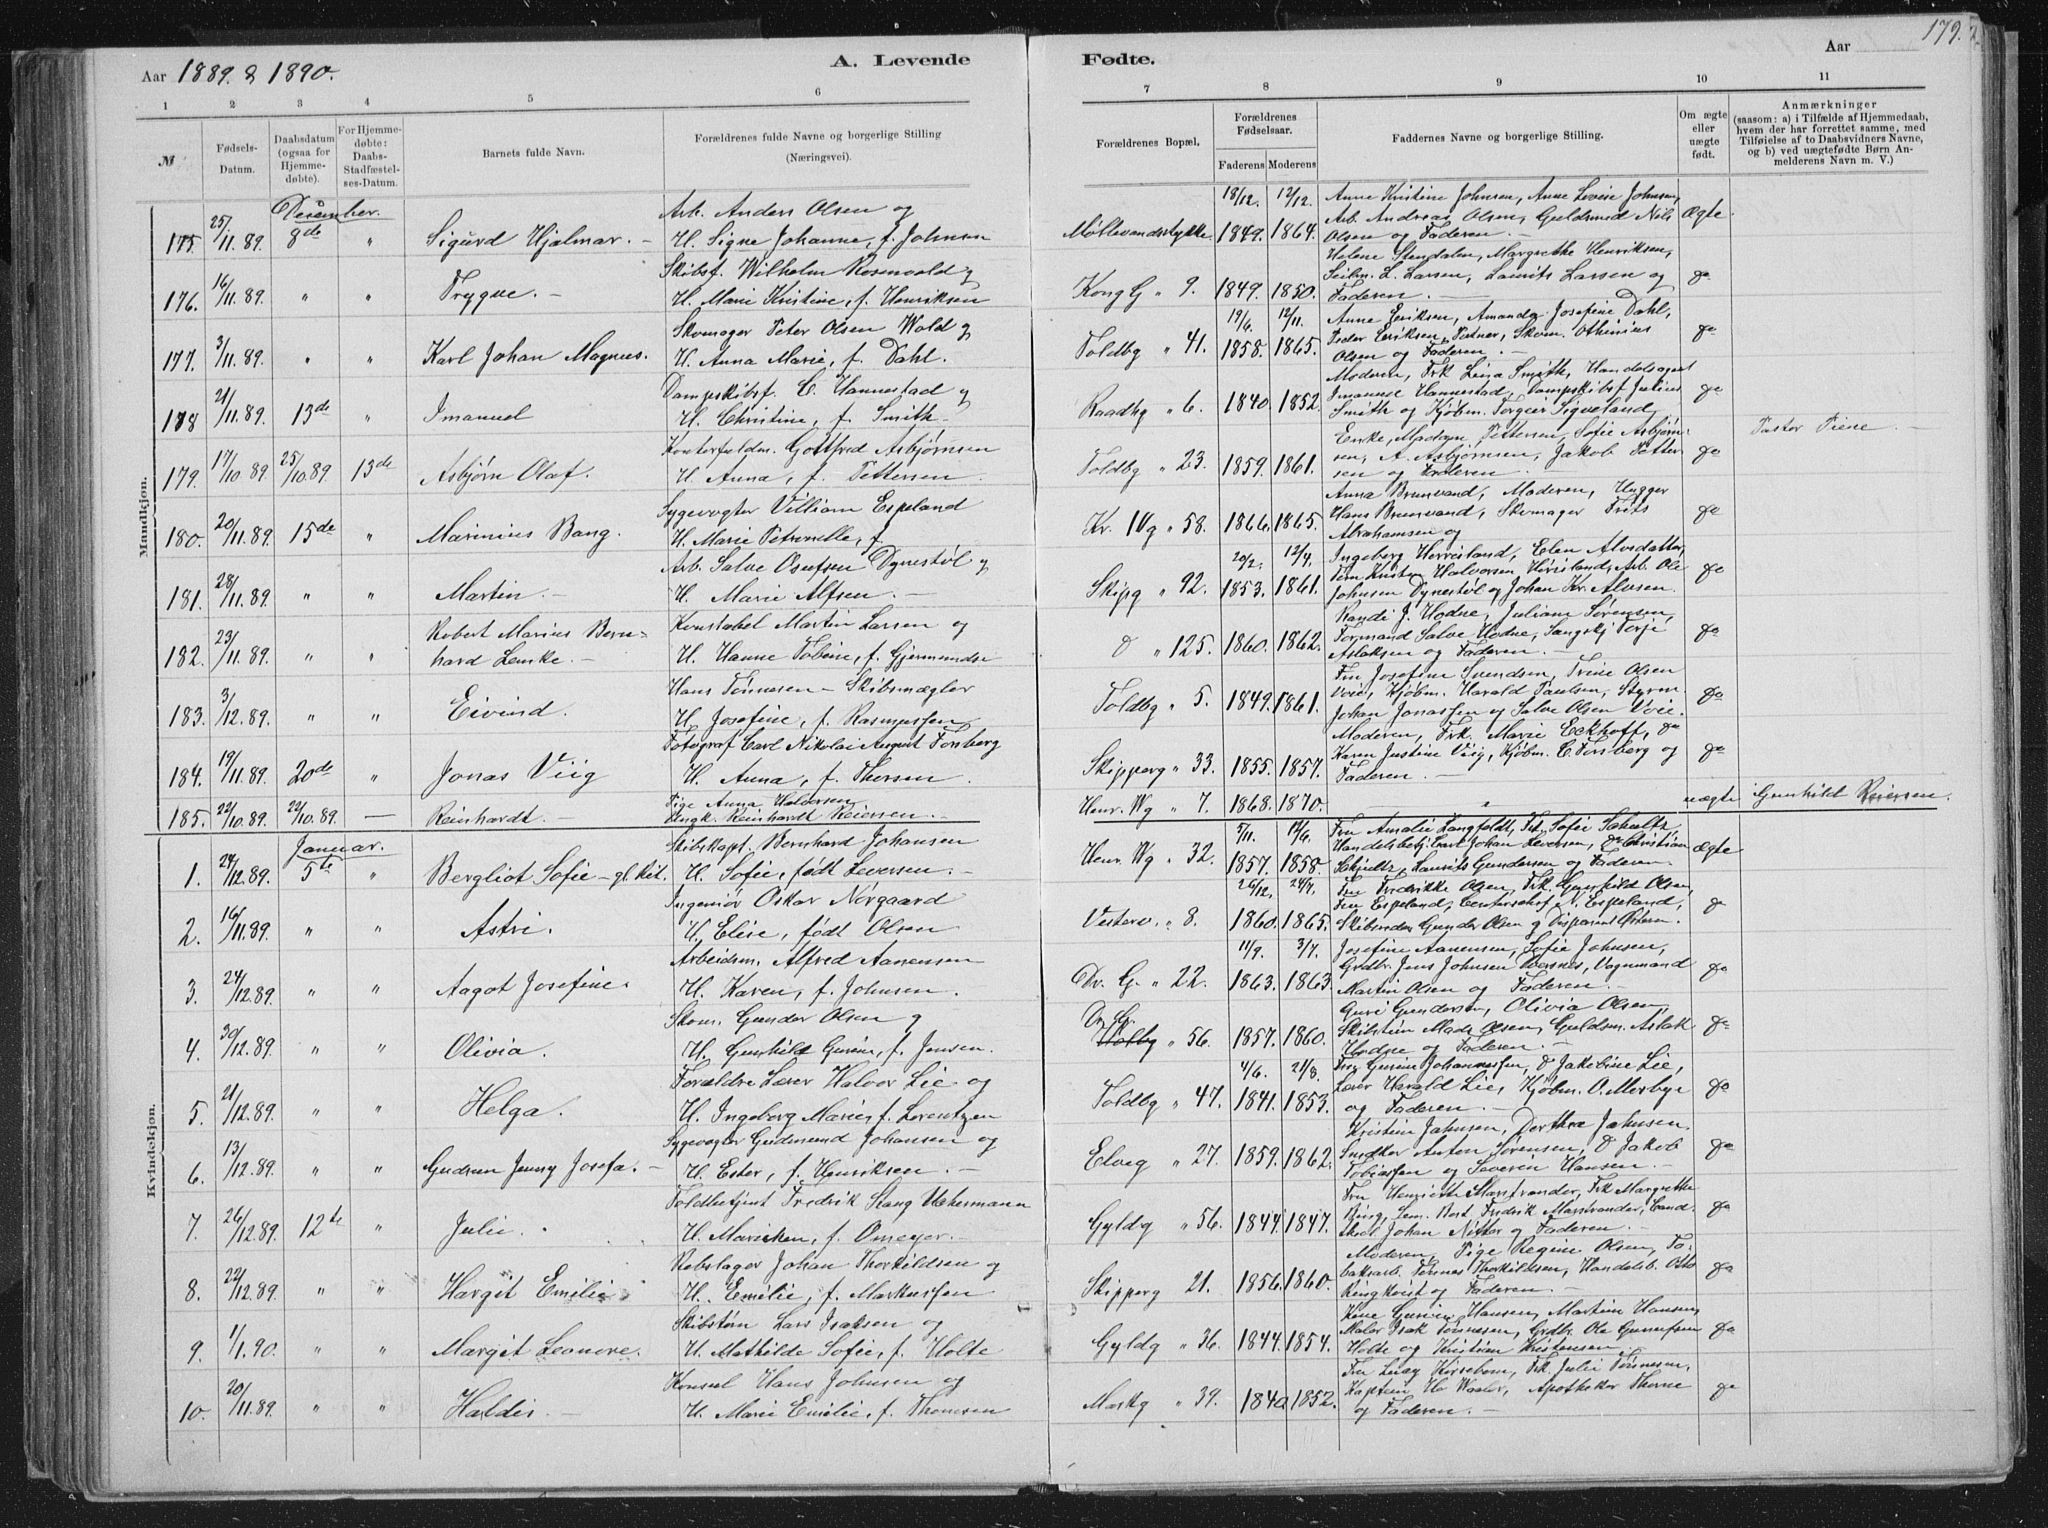 179.
Aar 1889. & 1890.
A. Levende Fødte.
Aar
1 2 3 4 5 6 7 8 9 10 11
№
Fødsels-Datum.
Daabsdatum (ogsaa for Hjemme-døbte).
For Hjemme-døbte: Daabs-Stadfæstel-ses-Datum.
Barnets fulde Navn.
Forældrenes fulde Navne og borgerlige Stilling (Næringsvei).
Forældrenes Bopæl.
Forældrenes Fødselsaar.
Faderens Moderens
Faddernes Navne og borgerlige Stilling.
Om ægte eller uægte født.
Anmærkninger
(saasom: a) i Tilfælde af Hjemmedaab, hvem der har forrettet samme, med Tilføielse af to Daabsvidners Navne, og b) ved uægtefødte Børn An-melderens Navn m. V.)
Mandkjøn.
December.
175. 25/11.89. 8de " Sigurd Hjalmar. – Arb. Anders Olsen og H. Signe Johanne, f. Johnsen Møllevandsstykke 18/12. 1849. 12/12. 1864. Anne Kristine Johnsen, Anne Lovise Johnsen, Arb. Andreas Olsen, Guldsmed Nils Olsen og Faderen. – Ægte
176. 16/11.89. " " Trygve. – Skibsf. Wilhelm Rosenvold og H. Marie Kristine, f. Henriksen Kong G " 9. 1849. 1850. Helene Stendalen, Margrethe Henriksen, Seilm. L. Larsen, Laurits Larsen og Faderen. – do
177. 3/11.89. " " Karl Johan Magnus. Skomager Peter Olsen Wold og H. Anna Marie, f. Dahl. Toldbg " 41. 19/6. 1858. 12/11. 1865. Anne Eriksen, Amanda Josefine Dahl, Peder Eriksen, Skom. Othinius Olsen og Faderen. – do
178 21/11.89. 13de " Imanuel Dampskibsf. C. Hannestad og H. Christine, f. Smith. Raadhg " 6. 1840. 1852. Moderen, Frk Lina Smith, Handelsagent Imanuel Hannestad, Dampskibsf. Julius Smith og Kjøbm. Torgeir Sigveland do
179. 17/10.89. 25/10.89. 13de Asbjørn Olaf. Kontorfuldm. Gottfred Asbjørnsen H. Anna, f. Pettersen. Toldbg " 23. 1859. 1861. Enke, Madam Pettersen, Sofie Asbjørn-sen, A. Asbjørnsen, Jakob Petter-sen og Faderen. do Pastor Piene. –
180. 20/11.89. 15de " Marinius Bang. Sygevogter Villiam Espeland H. Marie Petronelle, f. Kr. IVg " 58. 1866. 1865. Anna Brunvand, Moderen, Hugger Hans Brunvand, Skomager Frits Abrahamsen og do
181. 28/11.89. " " Martin. – Arb. Salve Osufsen Dynestøl og H. Marie Alfsen. – Skipg " 92. 20/2. 1853. 12/4. 1861. Ingeborg Herresland, Elen Alvsdatter, Tøm. Kristen Halvorsen, Arb. Ole Johnsen Dynestøl og Johan Kr. Alvsen. do
182. 23/11.89. " " Robert Marius Bern-hard Lemke. – Konstabel Martin Larsen og H. Hanne Tobine, f. Gjermundsen D " 125. 1860. 1862. Randi J. Hodne, Juliane Sørensen, Formand Salve Hodne, Terje Aslaksen og Faderen. – do
183. 3/12.89. " " Eivind. Hans Tønnesen – Skibsmægler H. Josefine, f. Rasmussen Toldbg " 5. 1849. 1861. Fru Josefine Svendsen, Trine Olsen Voie, Kjøbm. Harald Paulsen, Styrm. Johan Jonassen og Salve Olsen Voie. do
184. 19/11.89. 20de " Jonas Viig Fotograf Carl Nikolai August Forsberg H. Anna, f. Thorsen. Skipperg " 33. 1855. 1857. Moderen, Frk. Marie Eckhoff, do Karen Justine Viig, Kjøbm. C. Forsberg og Faderen. – do
185. 22/10.89. 22/10.89. — Reinhardt. – Pige Anna Halvorsen Ungk. Reinhardt Reiersen. – Henr. Wg " 7. 1868. 1870. uægte Gunhild Reiersen.
Kvindekjøn.
Januar.
1. 24/12.89. 5te " Bergliot Sofie – Skibskapt. Bernhard Johansen H. Sofie, født Seversen. – Henr. Wg " 32. 5/11. 1857. 12/6. 1858. Fru Amalie Langfeldt, Frk. Sofie Schultz, Handelsbetj. Carl Johan Seversen, Christian Schjultz, Laurits Gundersen og Faderen. ægte
2. 16/11.89. " " Astri. Ingeniør Oskar Nørgaard H. Elise, født Olsen Vesterv. " 8. 26/12. 1860. 24/4. 1865. Fru Fredrikke Olsen, Frk. Gunhild Olsen, Fru Espeland, N. Espeland, Skibsreder Gunder Olsen og do
3. 24/12.89. " " Aagot Josefine. Arbeidsm. Alfred Aanensen H. Karen, f. Johnsen. Dr. G. " 22. 11/9. 1863. 3/7. 1863. Josefine Aanensen, Sofie Johnsen, Grdbr. Jens Johnsen, Vognmand Martin Olsen og Faderen. – do
4. 30/12.89. " " Olivia. Skom. Gunder Olsen og H. Gunhild Gurine, f. Jensen. Dr. Gr. " 56. 1857. 1860. Guri Gundersen, Olivia Olsen, Mads Olsen, Guldsm. Aslak Hodne og Faderen. – do
5. 21/12.89. " " Helga. Forældre Lærer Halvor Lie og H. Ingeborg Marie, f. Lorentzen Toldbg " 47. 4/6. 1841. 21/8. 1853. Frøk Gurine Johannessen, D Jakobine Lie, Lærer Harald Lie, Kjøbm. O. Mersbye og Faderen. – do
6. 13/12.89. " " Gudrun Jenny Josefa. – Sygevogter Gudmund Johansen og H. Ester, f. Henriksen. – Elveg " 27. 1859. 1862. Kristine Jahnsen, Dorthea Jahnsen, Snedker Anton Sørensen, D Jakob Tobiassen og Severin Hansen. – do
7. 26/12.89. 12te " Julie. Toldbetjent Fredrik Stang Uckermann H. Mariken, f. Omeyer. Gyldg " 56. 1844. 1847. Fru Henriette Marstrander, Frk Margrethe Bing, Bert. Fredrik Marstrander, Cand. Johan Nitter og Faderen. – do
8. 22/12.89. " " Hargit Emilie Rebslager Johan Thorkildsen og H. Emilie, f. Markussen Skipperg 21. 1856. 1860. Moderen, Pige Regine Olsen, To-baksarb. Tønnes Thorkildsen, Handelsb. Otto Ringkvist og Faderen. – do
9. 1/1.90. " " Margit Leonore. Skibstøm Lars Isaksen og H. Mathilde Sofie, f. Holte Gyldg " 36. 1844. 1854. Gurine Hansen, Martine Hansen, Maler Isak Tønnesen, Grdbr. Ole Gunufsen Holte og Kristian Kristensen. do
10. 20/11.89. " " Haldis – Konsul Hans Johnsen og H. Marie Emilie, f. Thomsen Markg " 39. 1840. 1852. Fru Lucy Kirsebom, Frk. Julie Tønnesen, Kaptein Waaler, Apotheker Thorne og Faderen. – do